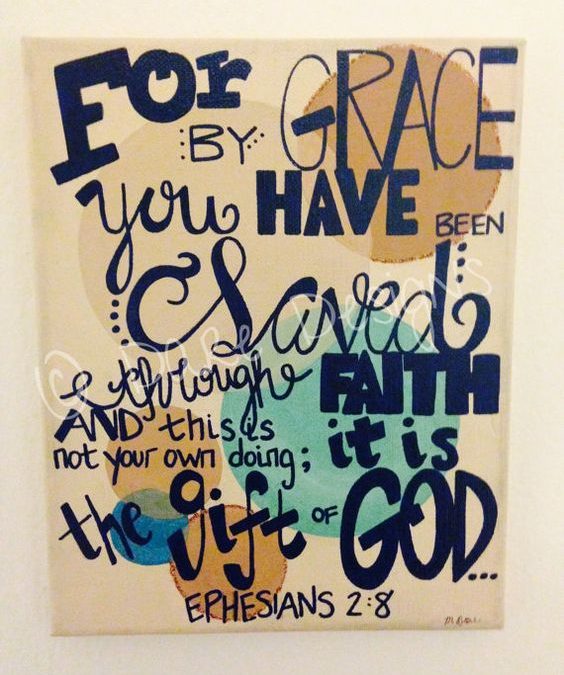 For GRACE
:BY:
you HAVE BEEN
Saved
through FAITH
AND this is
not your own doing; it is
the gift OF GOD...
EPHESIANS 2:8
© Dare Designs